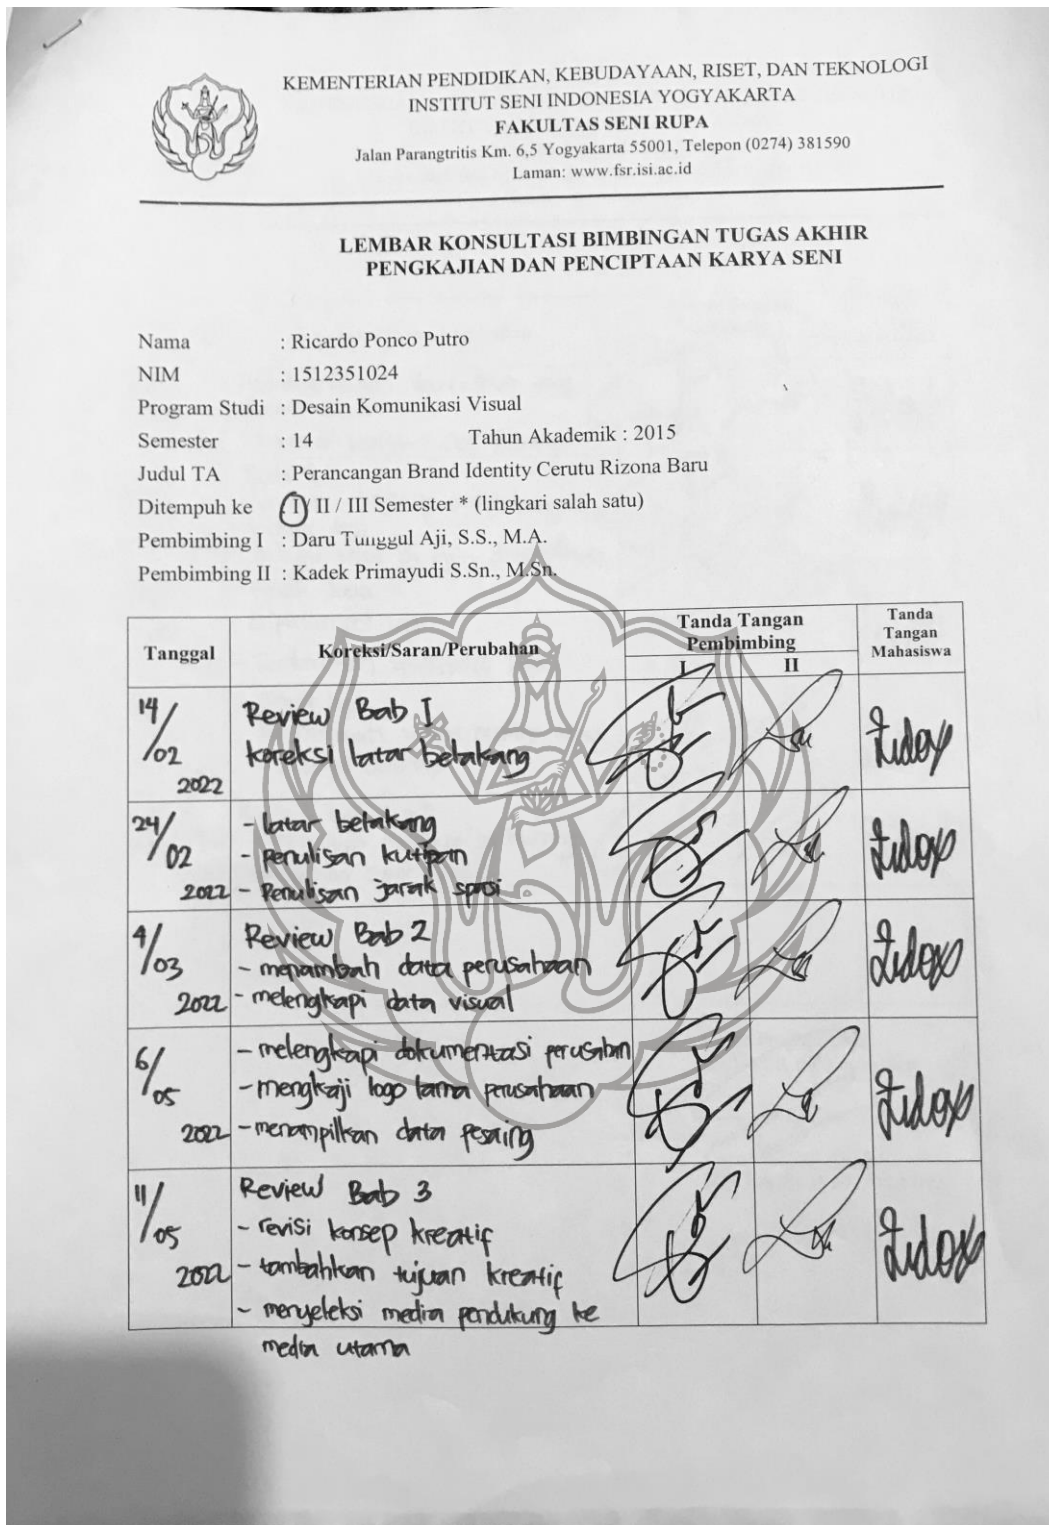 KEMENTERIAN PENDIDIKAN, KEBUDAYAAN, RISET, DAN TEKNOLOGI
INSTITUT SENI INDONESIA YOGYAKARTA
FAKULTAS SENI RUPA
Jalan Parangtritis Km. 6,5 Yogyakarta 55001, Telepon (0274) 381590
Laman: www.fsr.isi.ac.id
LEMBAR KONSULTASI BIMBINGAN TUGAS AKHIR
PENGKAJIAN DAN PENCIPTAAN KARYA SENI
Nama : Ricardo Ponco Putro
NIM : 1512351024
Program Studi : Desain Komunikasi Visual
Semester : 14 Tahun Akademik : 2015
Judul TA : Perancangan Brand Identity Cerutu Rizona Baru
Ditempuh ke : I / II / III Semester * (lingkari salah satu)
Pembimbing I : Daru Tunggul Aji, S.S., M.A.
Pembimbing II : Kadek Primayudi S.Sn., M.Sn.
Tanggal Koreksi/Saran/Perubahan Tanda Tangan Pembimbing I II Tanda Tangan Mahasiswa
14/02 2022 Review Bab I
koreksi latar belakang
24/02 2022 - latar belakang
- penulisan kutipan
- Penulisan jarak spasi
4/03 2022 Review Bab 2
- menambah data perusahaan
- melengkapi data visual
6/05 2022 - melengkapi dokumentasi
- mengkaji logo lama perusahaan
- menampilkan data pesaing
11/05 2022 Review Bab 3
- revisi konsep kreatif
- tambahkan tujuan kreatif
- menyeleksi media pendukung ke
media utama